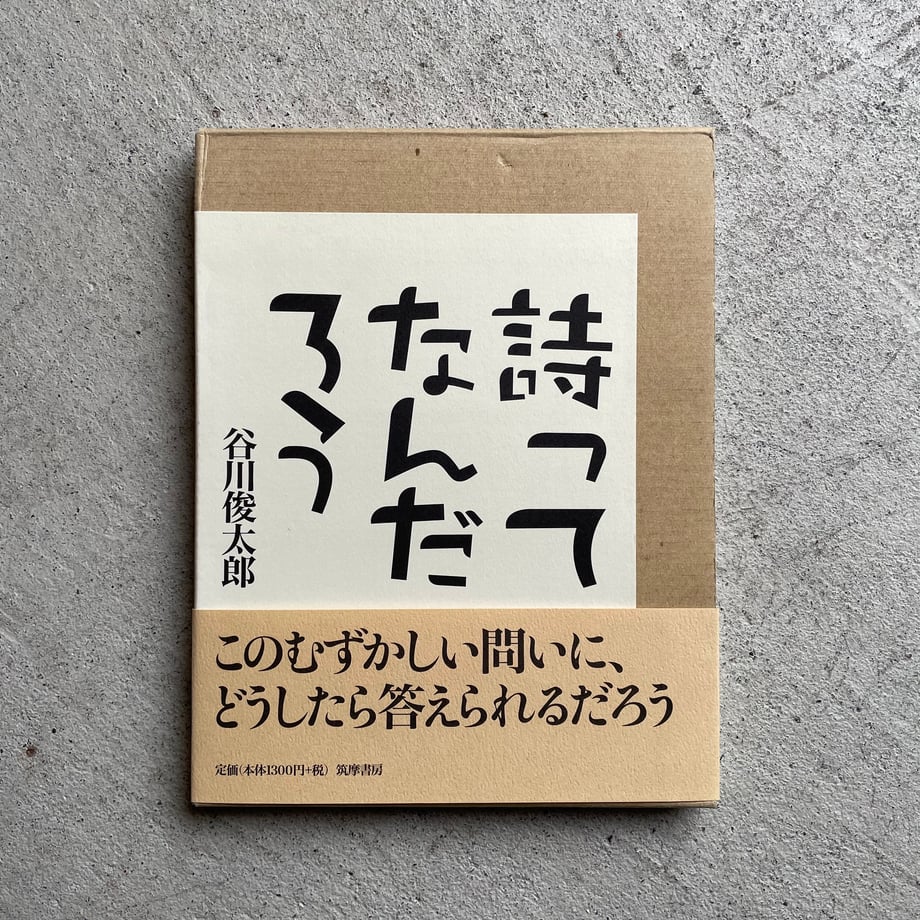 詩って
なんだ
ろう
谷川俊太郎
このむずかしい問いに、
どうしたら答えられるだろう
定価(本体1300円+税) 筑摩書房